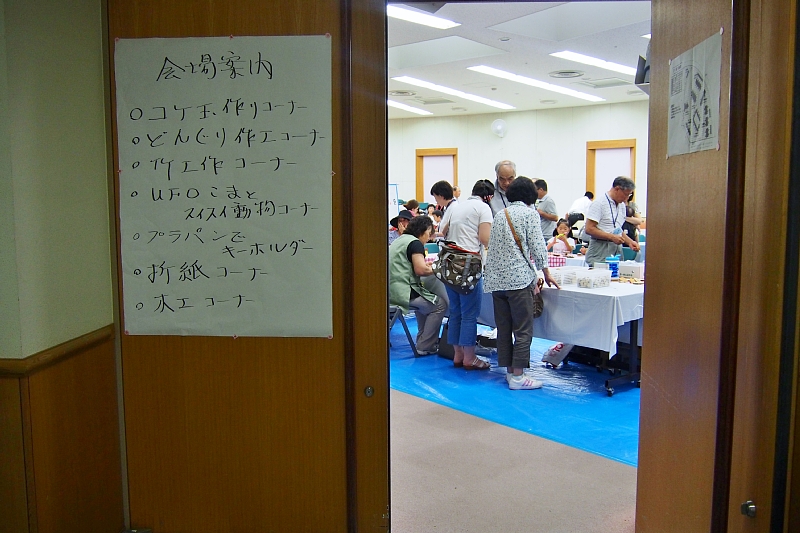 会場案内
○コケ玉作りコーナー
○どんぐり作工コーナー
○竹工作コーナー
○UFOこまと
スイスイ動物コーナー
○プラバンで
キーホルダー
○折紙コーナー
○木工コーナー